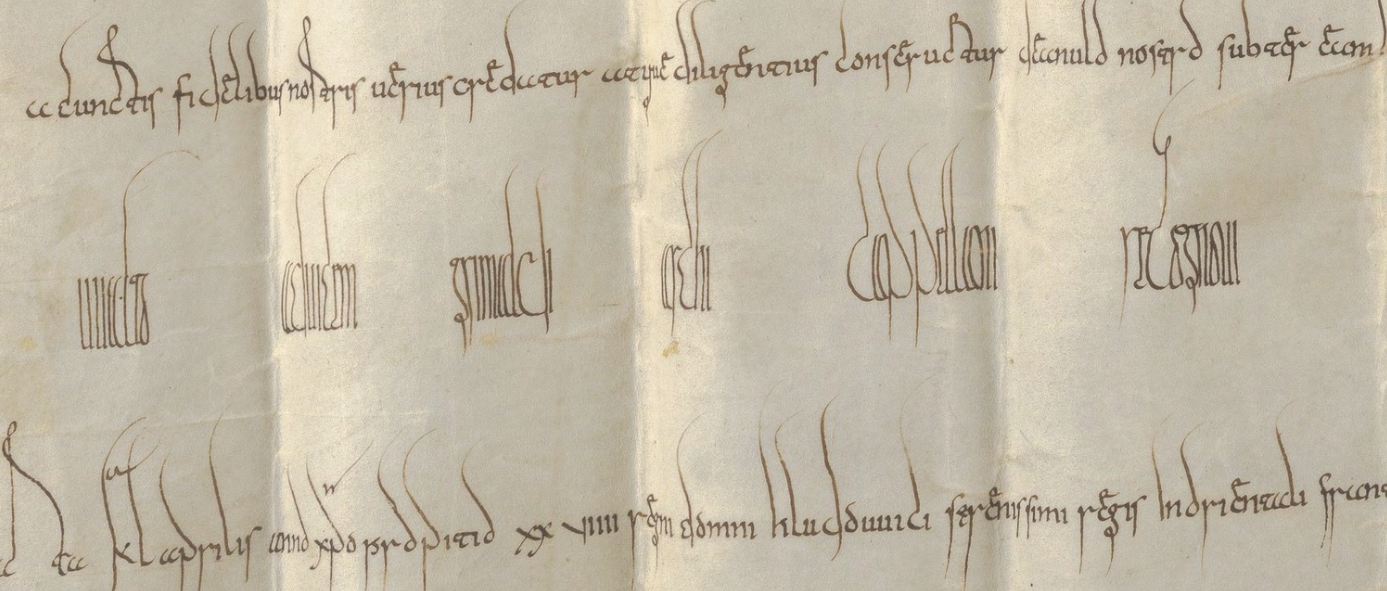 a cunctis fidelibus nostris uerius credatur atq; diligentius conseruetur de anulo nostro subter eam
aduicem grimaldi archi cappellani recognoui
kl aprilis anno xpo propitio xx uiiii regni domni hludouuici serenissimi regis In orientali franc